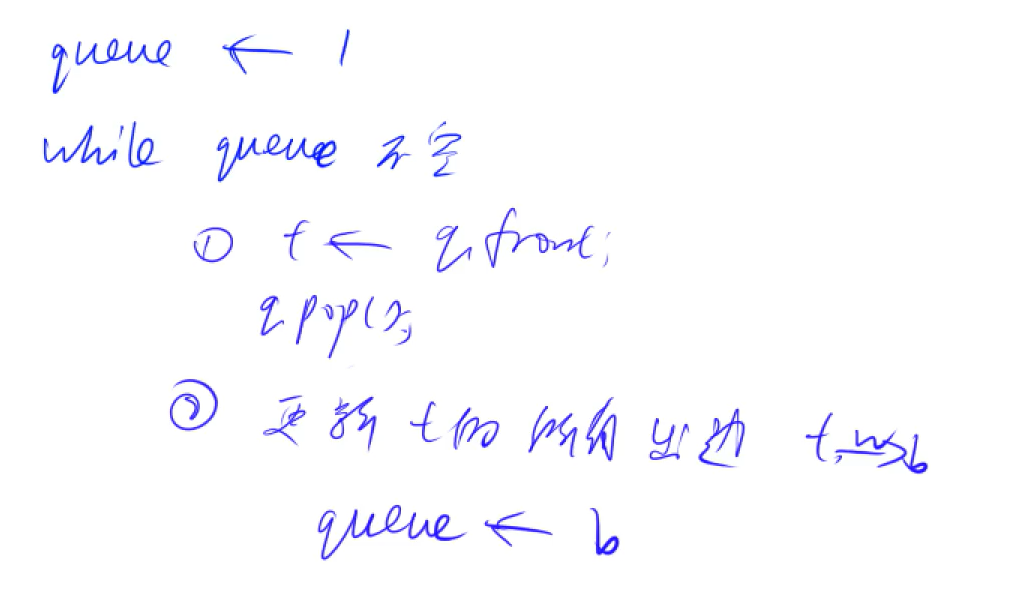 queue ← 1
while queue 不空
① t ← q.front;
q.pop();
② 更新 t的 所有 出边 t w→ b
queue ← b